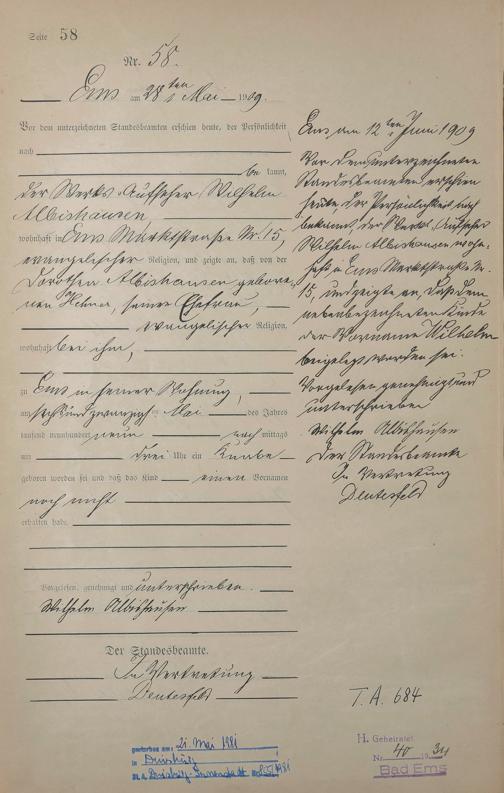 Seite 58
Nr. 58.
Ems am 28ten Mai 1909.
Vor dem unterzeichneten Standesbeamten erschien heute, der Persönlichkeit
nach
be kannt,
der Werks-Aufseher Wilhelm
Albishausen
wohnhaft in Ems Marktstraße Nr. 15,
evangelischer Religion, und zeigte an, daß von der
Dorothea Albishausen gebore-
nen, seiner Ehefrau,
evangelischer Religion,
wohnhaft bei ihm,
zu Ems in seiner Wohnung,
am sechsundzwanzigsten Mai des Jahres
tausend neunhundert neun nach mittags
um drei Uhr ein Knabe
geboren worden sei und daß das Kind einen Vornamen
noch nicht
erhalten habe.
Vorgelesen, genehmigt und unterschrieben.
Wilhelm Albishausen
Der Standesbeamte.
In Vertretung
Deutesfeld
Ems am 12ten Juni 1909
Vor dem unterzeichneten
Standesbeamten erschien
heute, der Persönlichkeit nach
bekannt, der Werks Aufseher
Wilhelm Albishausen wohn-
haft in Ems Marktstraße Nr.
15, und zeigte an, daß dem
nebenbezeichneten Kinde
der Vorname Wilhelm
beigelegt worden sei.
Vorgelesen, genehmigt und
unterschrieben
Wilhelm Albishausen
Der Standesbeamte
In Vertretung
Deutesfeld
T.A. 684
gestorben am: 21. Mai 1981
in Duisburg
H. Geheiratet
Nr. 40 1934
Bad Ems